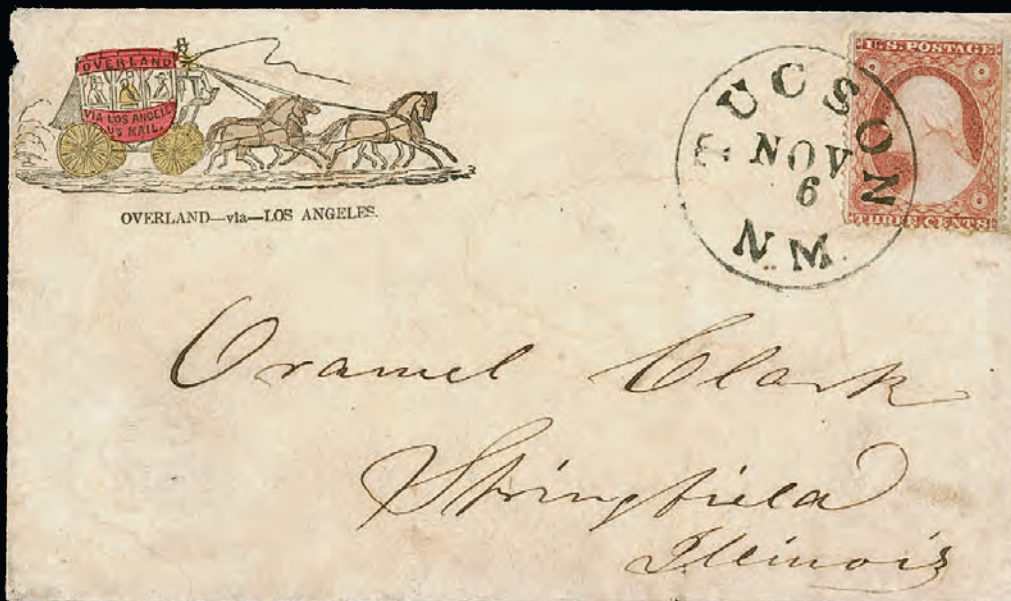 OVERLAND
VIA LOS ANGELES
U.S MAIL.
OVERLAND—via—LOS ANGELES.
TUCSON
NOV
6
N.M.
U.S. POSTAGE
THREE CENTS
Oramel Clark
Springfield
Illinois